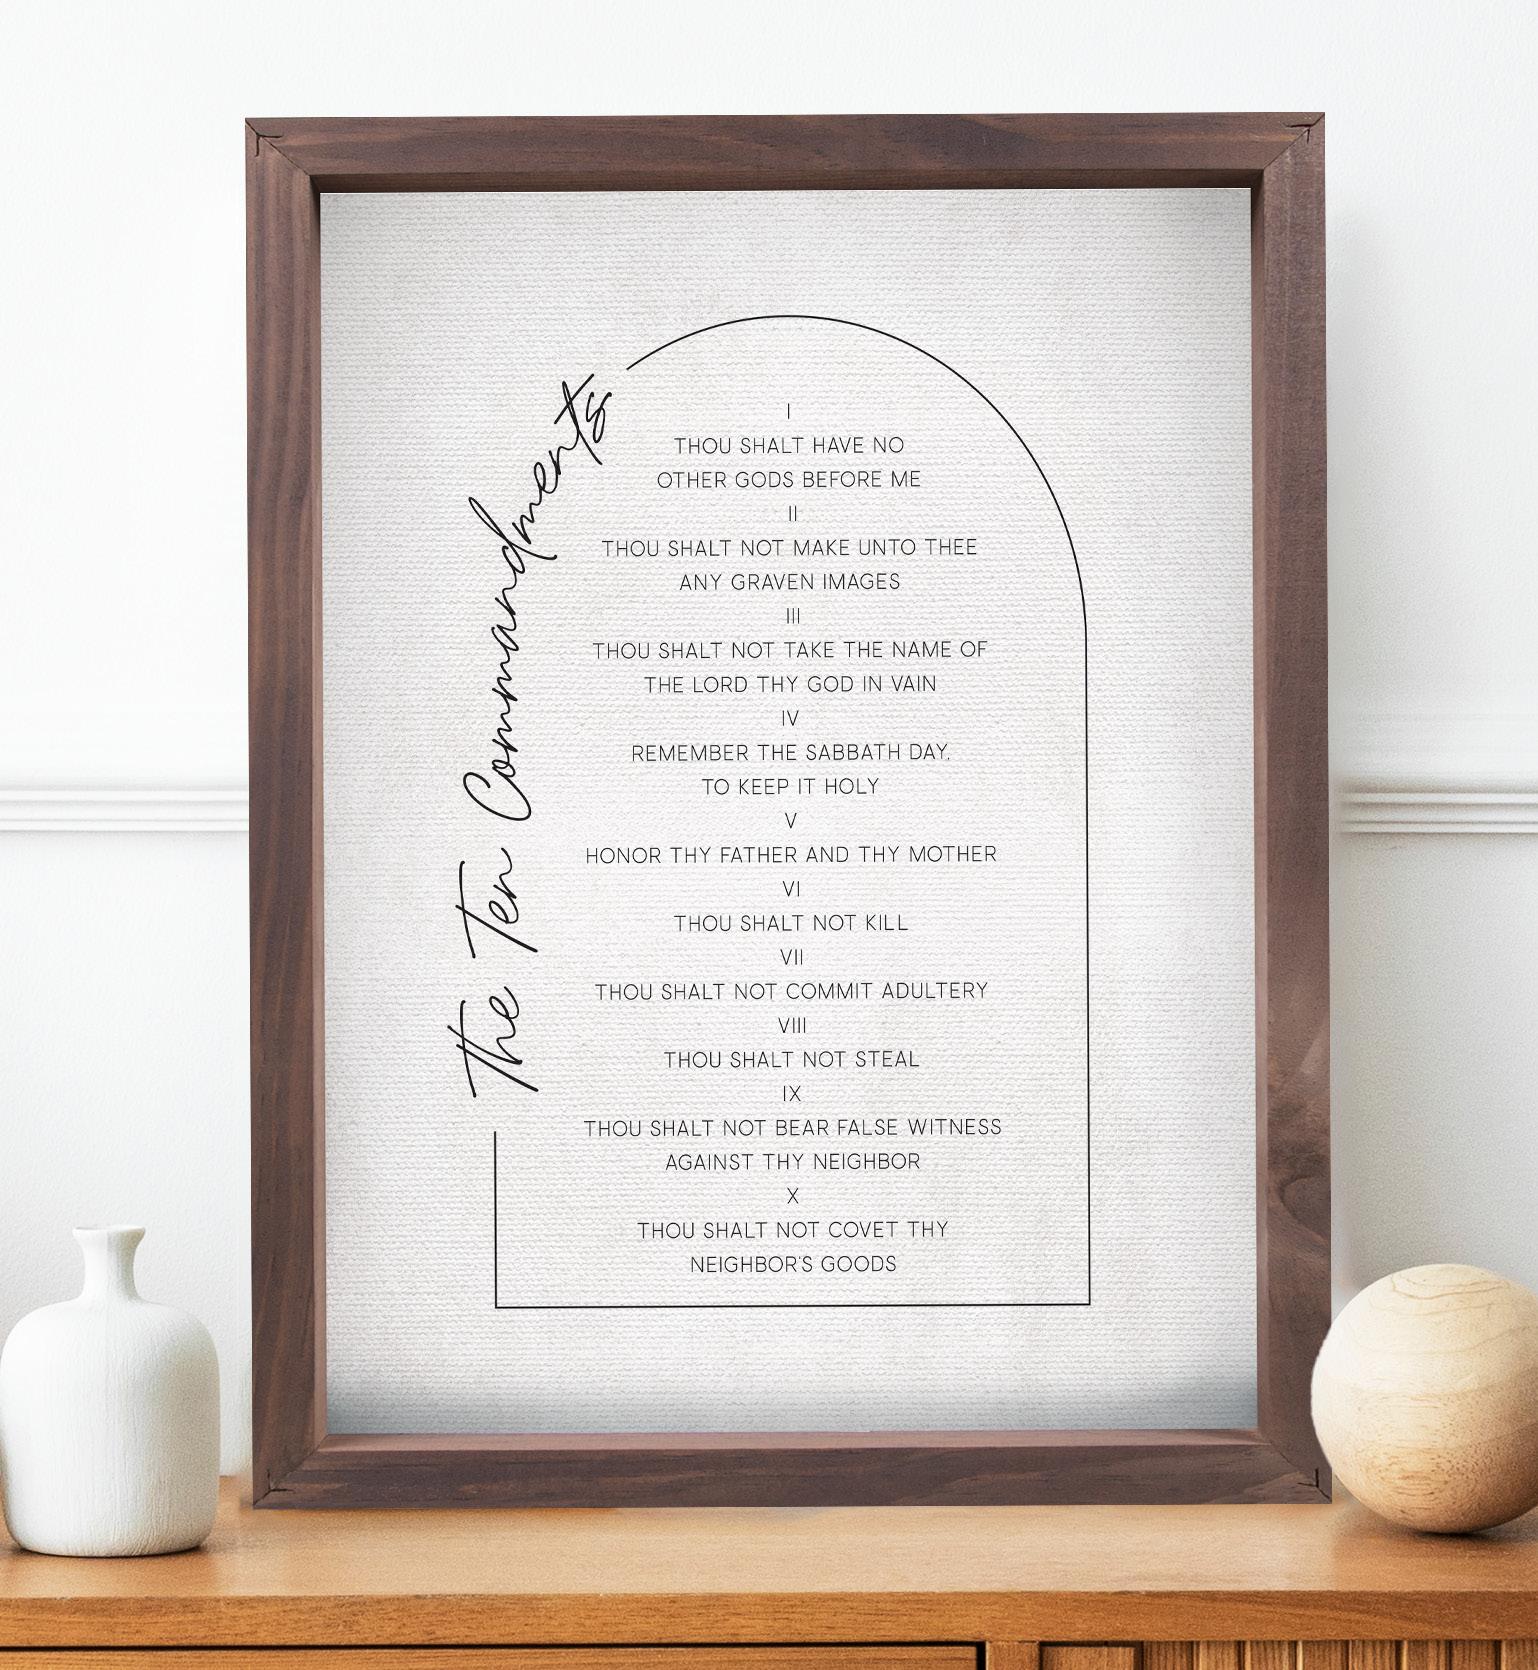 The Ten Commandments
I
THOU SHALT HAVE NO
OTHER GODS BEFORE ME
II
THOU SHALT NOT MAKE UNTO THEE
ANY GRAVEN IMAGES
III
THOU SHALT NOT TAKE THE NAME OF
THE LORD THY GOD IN VAIN
IV
REMEMBER THE SABBATH DAY,
TO KEEP IT HOLY
V
HONOR THY FATHER AND THY MOTHER
VI
THOU SHALT NOT KILL
VII
THOU SHALT NOT COMMIT ADULTERY
VIII
THOU SHALT NOT STEAL
IX
THOU SHALT NOT BEAR FALSE WITNESS
AGAINST THY NEIGHBOR
X
THOU SHALT NOT COVET THY
NEIGHBOR'S GOODS